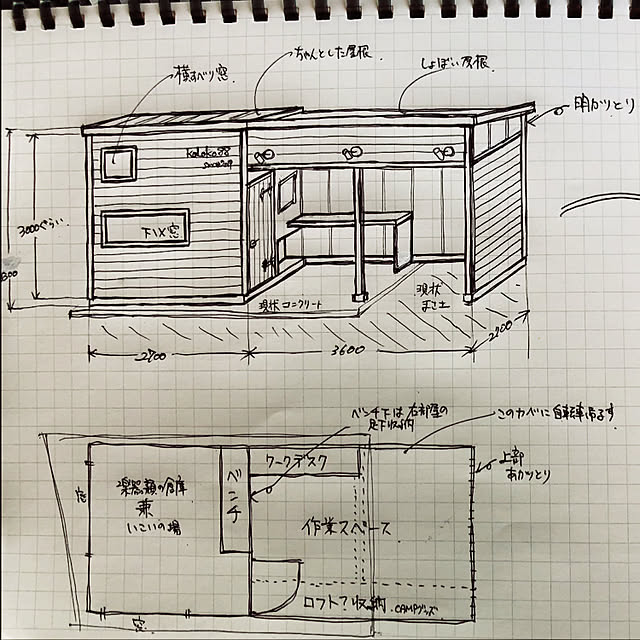 ちゃんとした屋根.
横すべり窓.
しょぼい屋根.
明かりとり
kaloka88
3000ぐらい
FIX窓
現状コンクリート
現状
まさ土
2700
3600
2700
ベンチ下は右部屋の
足下収納
このカベに自転車吊るす
上部
あかりとり
ワークデスク
ベンチ
楽器類の倉庫
兼
いこいの場
窓
作業スペース
ロフト?収納.CAMPグッズ
窓